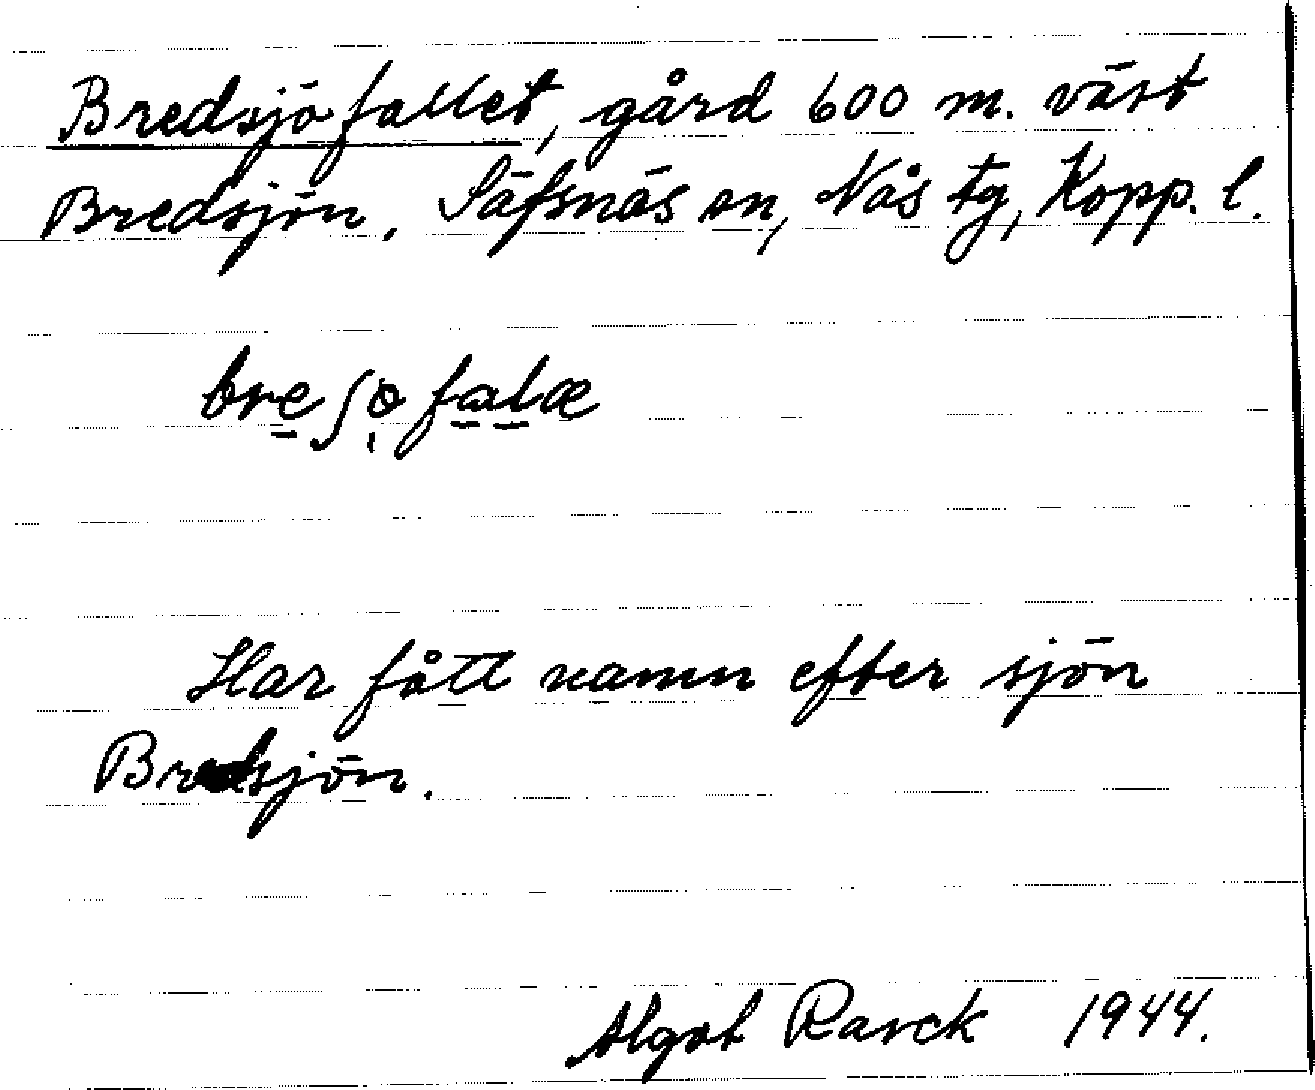 Bredsjöfallet, gård 600 m. väst
Bredsjön. Säfsnäs sn, Nås tg, Kopp. l.
bre̱ʃo̩fa̱ḻæ
Har fått namn efter sjön
Bredsjön.
Algot Rasck 1944.